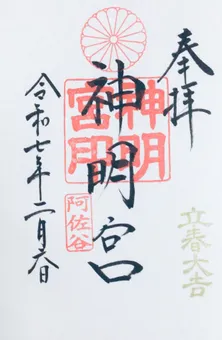 奉拝
立春大吉
神明宮
神明宮印
阿佐谷
令和七年二月六日